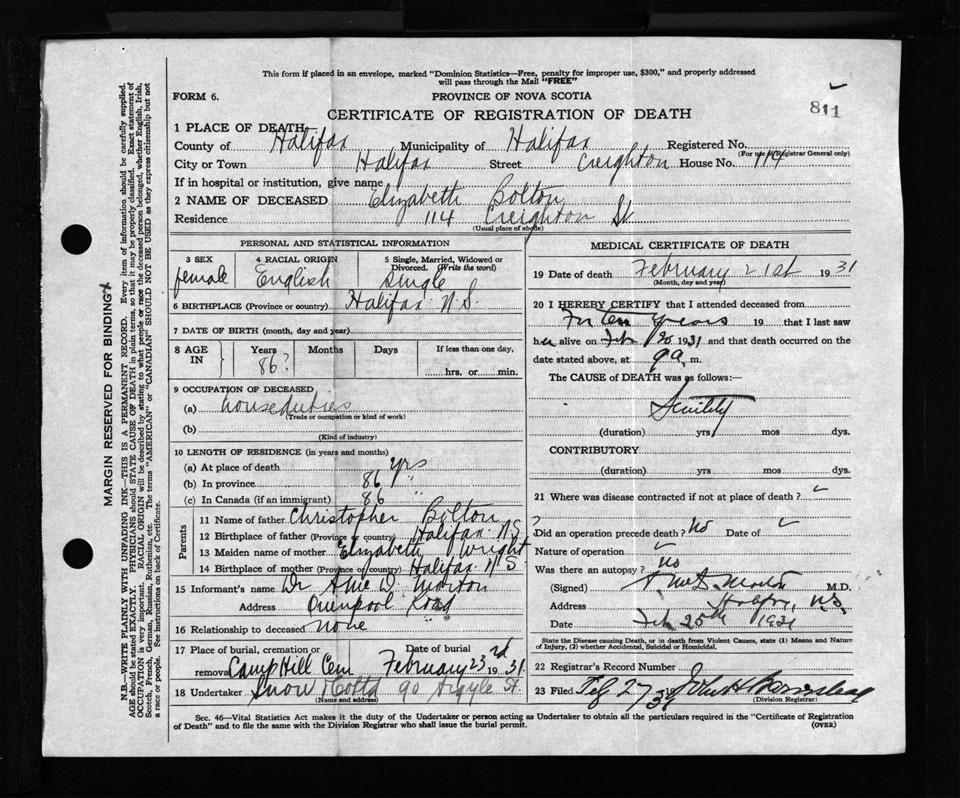 This form if placed in an envelope, marked "Dominion Statistics—Free, penalty for improper use, $300," and properly addressed
will pass through the Mail "FREE"
FORM 6.
PROVINCE OF NOVA SCOTIA
811
CERTIFICATE OF REGISTRATION OF DEATH
1 PLACE OF DEATH
County of Halifax Municipality of Halifax Registered No.
(For use of Registrar General only)
City or Town Halifax Street Creighton House No. 114
If in hospital or institution, give name
2 NAME OF DECEASED Elizabeth Bolton
Residence 114 Creighton St
(Usual place of abode)
PERSONAL AND STATISTICAL INFORMATION
3 SEX female
4 RACIAL ORIGIN English
5 Single, Married, Widowed or Divorced. (Write the word) Single
6 BIRTHPLACE (Province or country) Halifax N.S.
7 DATE OF BIRTH (month, day and year)
8 AGE IN Years 86? Months Days If less than one day, hrs. or min.
9 OCCUPATION OF DECEASED
(a) houseduties
(Trade or occupation or kind of work)
(b)
(Kind of industry)
10 LENGTH OF RESIDENCE (in years and months)
(a) At place of death yrs
(b) In province 86 "
(c) In Canada (if an immigrant) 86 "
Parents
11 Name of father Christopher Bolton
12 Birthplace of father (Province or country) Halifax N.S.
13 Maiden name of mother Elizabeth Wright
14 Birthplace of mother (Province or country) Halifax N S
15 Informant's name Dr D. Morton
Address Road
16 Relationship to deceased none
17 Place of burial, cremation or removal Camp Hill Cem
Date of burial February 23rd 1931
18 Undertaker Snow & Co Ltd 90 Argyle St.
(Name and address)
MEDICAL CERTIFICATE OF DEATH
19 Date of death February 21st 1931
(Month, day and year)
20 I HEREBY CERTIFY that I attended deceased from
For ten years 19 that I last saw
her alive on Feb 20 1931 and that death occurred on the
date stated above, at 9 a. m.
The CAUSE of DEATH was as follows:
Senility
(duration) yrs mos dys.
CONTRIBUTORY
(duration) yrs. mos dys.
21 Where was disease contracted if not at place of death?
?
Did an operation precede death? No Date of
Nature of operation
Was there an autopsy? no
(Signed) Morton M.D.
Address Halifax, N.S.
Date Feb 25th 1931
State the Disease causing Death, or in death from Violent Causes, state (1) Means and Nature of Injury, (2) whether Accidental, Suicidal or Homicidal.
22 Registrar's Record Number
23 Filed Feb 27 1931 John H
(Division Registrar)
Sec. 46—Vital Statistics Act makes it the duty of the Undertaker or person acting as Undertaker to obtain all the particulars required in the "Certificate of Registration
of Death" and to file the same with the Division Registrar who shall issue the burial permit.
(OVER)
MARGIN RESERVED FOR BINDING
N.B.—WRITE PLAINLY WITH UNFADING INK—THIS IS A PERMANENT RECORD. Every item of information should be carefully supplied.
AGE should be stated EXACTLY. PHYSICIANS should STATE CAUSE OF DEATH in plain terms, so that it may be properly classified. Exact statement of
OCCUPATION is very important. RACIAL ORIGIN will be described by stating to what people or race the deceased person belonged, whether English, Irish,
Scotch, French, German, Russian, Ruthenian, etc. The terms "AMERICAN" or "CANADIAN" SHOULD NOT BE USED as they express citizenship but not
a race or people. See instructions on back of Certificate.